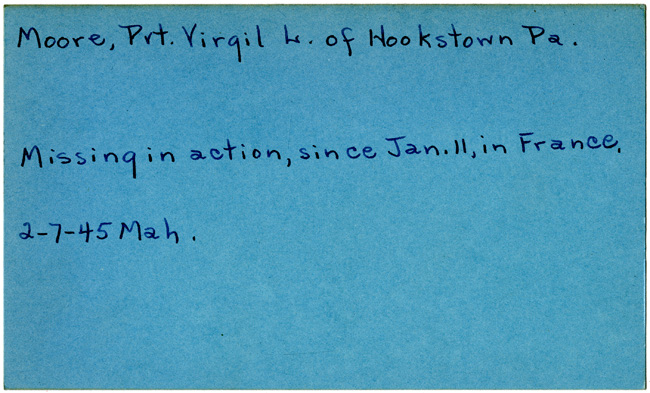 Moore, Pvt. Virgil L. of Hookstown Pa.
Missing in action, since Jan. 11, in France.
2-7-45 Mah.